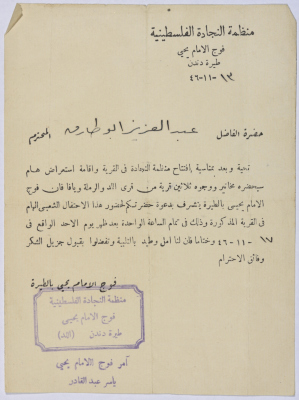 منظمة النجادة الفلسطينية
فوج الامام يحيى
طيرة دندن
١٣-١١-٤٦
حضرة الفاضل عبد العزيز ابو طارق المحترم
تحية وبعد بمناسبة افتتاح منظمة النجادة في القرية واقامة استعراض هام
سيحضره مخاتير ووجوه ثلاثين قرية من قرى اللد والرملة ويافا فان فوج
الامام يحيى بالطيرة يتشرف بدعوة حضرتكم لحضور هذا الاحتفال الشعبي الهام
في القرية المذكورة وذلك في تمام الساعة الواحدة بعد ظهر يوم الاحد الواقع في
١٧-١١-٤٦ وختاما فان لنا امل وطيد بالتلبية وتفضلوا بقبول جزيل الشكر
وفائق الاحترام
فوج الامام يحيى بالطيرة
منظمة النجادة الفلسطينية
فوج الامام يحيى
طيرة دندن (اللد)
آمر فوج الامام يحيى
ياسر عبد القادر